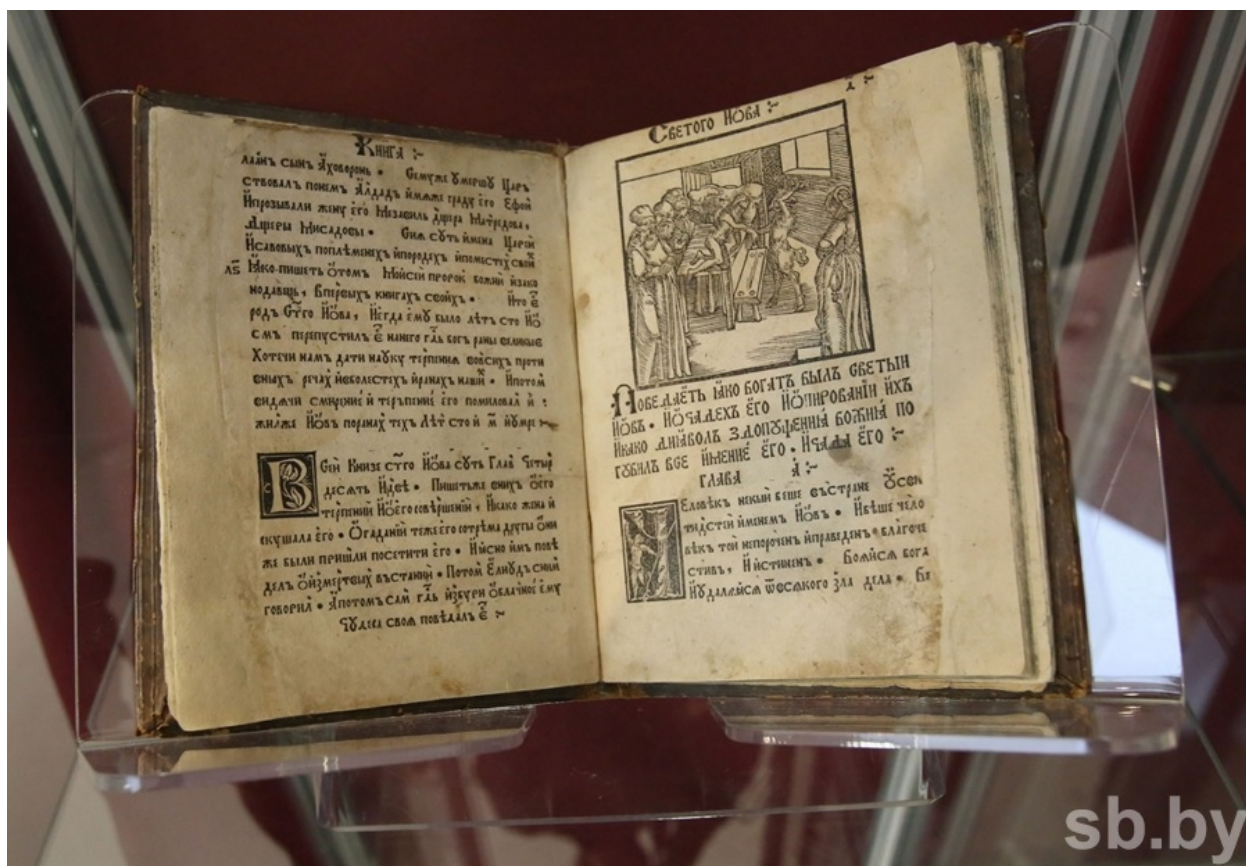 Книга :~
лаанъ сынъ Аховоронь • Семуже умершу царь
ствовал понем Алдад ӥмѧже граду его Ефои
Ипрозывали жену его Мезавиль дщера Матредова,
дщеры Мисадовы • Сиѧ суть имена Царей
Исавовыхъ поплеменех ипородех ипоместех свои
лѕ Ꙗко пишеть ѡтом Мойсей пророк божий изако
нодавець, Впервых книгахъ своихъ • Ито е
род Ст҃го Иѡва, Иегда ему было лѣтъ сто Иѡ
смъ перепустил е нанего гд҃ь богъ раны великые
Хотечи нам дати науку терпениѧ вовсих проти
вныхъ речах иволестех иранах наши • Ипотом
видѧчи смирение и терьпение его помиловал и :
жилже Иѡвъ поранах тех лѣт сто и м҃ иумре
Всей Книзе ст҃го Иѡва суть Глав Четыр
десѧть Идвѣ • Пишетьже вних ѡего
терпении Иѡего совѣршении, Икако жена и
скушала его • Огадании теже его сотрѣма другы ѡни
же были пришли посетити его • Иѧсно имъ повѣ
дел ѡизмертвых въстании • Потом Елиудъ сним
говорил • Апотомъ сам гд҃ь избури ѡблачное ему
Чудеса своѧ повѣдалъ е :~
Светого Иѡва :~
Поведаеть ꙗко богатъ былъ светыи
Иѡвъ • Иѡчадехъ его Иѡпировании ихъ
Икако диꙗволъ здопущениꙗ божиꙗ по
губилъ все имение его • Ичада его :~
Глава а҃ :~
Человѣкъ некый беше въстране Усви
тидстей именемъ Иѡвъ • Ибѣше чело
вѣкъ той непорочен иправеденъ благоче
стивъ, Иистинен • Боѧйсѧ бога
Иудалѧѧйсѧ ѿвсѧкого зла дела • Бе
sb.by